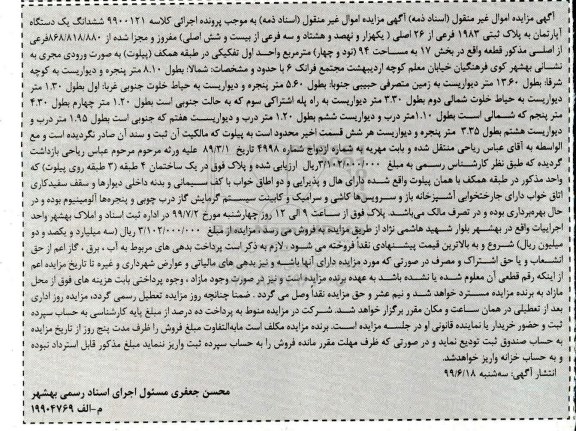 آگهی مزایده اموال غیر منقول (اسناد ذمه) آگهی مزایده اموال غیر منقول (اسناد ذمه) به موجب پرونده اجرائی کلاسه ۹۹۰۰۱۲۱ ششدانگ یک دستگاه
آپارتمان به پلاک ثبتی ۱۹۸۳ فرعی از ۲۶ اصلی ( یکهزار و نهصد و هشتاد و سه فرعی از بیست و شش اصلی) مفروز و مجزا شده از ۸۶۸/۸۱۸/۸۸۰فرعی
از اصلی مذکور قطعه واقع در بخش ۱۷ به مساحت ۹۴ (نود و چهار) مترمربع واحد اول تفکیکی در طبقه همکف (پیلوت) به صورت ورودی مجری به
نشانی بهشهر کوی فرهنگیان خیابان معلم کوچه اردیبهشت مجتمع فرانک ۶ با حدود و مشخصات: شمالا: بطول ۸.۱۰ متر پنجره و دیواریست به کوچه
شرقا: بطول ۱۳.۶۰ متر دیواریست به زمین متصرفی حبیبی جنوبا: بطول ۵.۶۰ متر پنجره و دیواریست به حیاط خلوت جنوبی غربا: اول بطول ۱.۳۰ متر
دیواریست به حیاط خلوت شمالی دوم بطول ۳.۳۰ متر دیواریست به راه پله اشتراکی سوم که به حالت جنوبی است بطول ۱.۲۰ متر چهارم بطول ۴.۳۰
متر پنجم که شمالـی است بطول ۱.۱۰متر درب و دیواریست ششم بطول ۱.۲۰ متر درب و دیواریست هفتم که جنوبی است بطول ۱.۹۵ متر درب و
دیواریست هشتم بطول ۳.۳۵ متر پنجره و دیواریست هر شش قسمت اخیر محدود است به پیلوت که مالکیت آن ثبت و سند آن صادر نگردیده است و مع
الواسطه به آقای عباس ریاحی منتقل شده و بابت مهریه به شماره ازدواج شماره ۴۹۹۸ تاریخ ۸۹/۳/۱ علیه ورثه مرحوم مرحوم عباس ریاحی بازداشت
گردیده که طبق نظر کارشناس رسمی به مبلغ ۳/۱۰۲/۰۰۰/۰۰۰ریال ارزیابی شده و پلاک فوق در یک ساختمان ۴ طبقه (۳ طبقه روی پیلوت) که
واحد مذکور در طبقه همکف یا همان پیلوت واقع شده دارای هال و پذیرایی و دو اطاق خواب با کف سیمانی و بدنه داخلی دیوارها و سقف سفیدکاری
اتاق خواب دارای جارختخوابی آشپزخانه باز و سرویس‌ها کاشی و سرامیک و کابینت سیستم گرمایش گاز درب چوبی و پنجره‌ها آلومینیوم بوده و در
حال بهره‌برداری بوده و در تصرف مالک می‌باشد. پلاک فوق از ساعت ۹ الی ۱۲ روز چهارشنبه مورخ ۹۹/۷/۲ در اداره ثبت اسناد و املاک بهشهر واحد
اجراییات واقع در بهشهر بلوار شهید هاشمی نژاد از طریق مزایده به فروش می رسد. مزایده از مبلغ ۳/۱۰۲/۰۰۰/۰۰۰ ریال (سه میلیارد و یکصد و دو
میلیون ریال) شروع و به بالاترین قیمت پیشنهادی نقداً فروخته می شود . لازم به ذکر است پرداخت بدهی های مربوط به آب ، برق ، گاز اعم از حق
انشعـاب و یا حق اشتراک و مصرف در صورتی که مورد مزایده دارای آنها باشـد و نیز بدهی های مالیاتی و عوارض شهرداری و غیره تا تاریخ مزایده اعم
از اینکه رقم قطعی آن معلوم شده یا نشده باشد به عهده برنده مزایده است و نیز در صورت وجود مازاد ، وجوه پرداختی بابت هزینه های فوق از محل
مازاد به برنده مزایده مسترد خواهد شد و نیم عشر و حق مزایده نقداً وصل می گردد . ضمنا چنانچه روز مزایده تعطیل رسمی گردد، مزیده روز اداری
بعد از تعطیلی در همان ساعت و مکان مقرر برگزار خواهد شـد. شرکت در مزایده منوط به پرداخت ده درصد از مبلغ پایه کارشناسی به حساب سپرده
ثبت و حضور خریدار یا نماینده قانونی او در جلسـه مزایده اسـت. برنده مزایده مکلف است مابه‌التفاوت مبلغ فروش را ظرف مدت پنج روز از تاریخ مزایده
به حساب صندوق ثبت تودیع نماید و در صورتی که ظرف مهلت مقرر مانده فروش را به حساب سپرده ثبت واریز ننماید مبلغ مذکور قابل استرداد نبوده
و به حساب خزانه واریز خواهدشد.
انتشار آگهی: سه‌شنبه ۹۹/۶/۱۸
محسن جعفری مسئول اجرای اسناد رسمی بهشهر
م-الف ۱۹۹۰۴۷۶۹